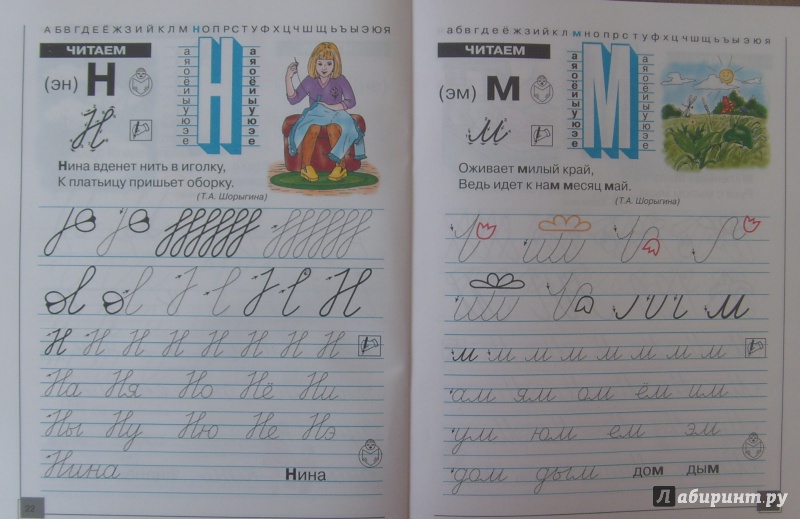 АБВГДЕЁЖЗИЙКЛМНОПРСТУФХЦЧШЩЪЫЬЭЮЯ
ЧИТАЕМ
(эн) Н
Н
Н
а я о ё и ы у ю э е
а я о ё и ы у ю э е
Нина вденет нить в иголку,
К платьицу пришьет оборку.
(Т.А. Шорыгина)
Н
Н Н Н Н Н Н Н Н
На Ня Но Нё Ни
Ны Ну Ню Не Нэ
Нина Нина
22
абвгдеёжзийклмнопрстуфхцчшщъыьэюя
ЧИТАЕМ
(эм) М
м
М
а я о ё и ы у ю э е
а я о ё и ы у ю э е
Оживает милый край,
Ведь идет к нам месяц май.
(Т.А. Шорыгина)
м
м м м м м м м м
ам ям ом ём им
ум юм ем эм
дом дым дом дым
Лабиринт.ру